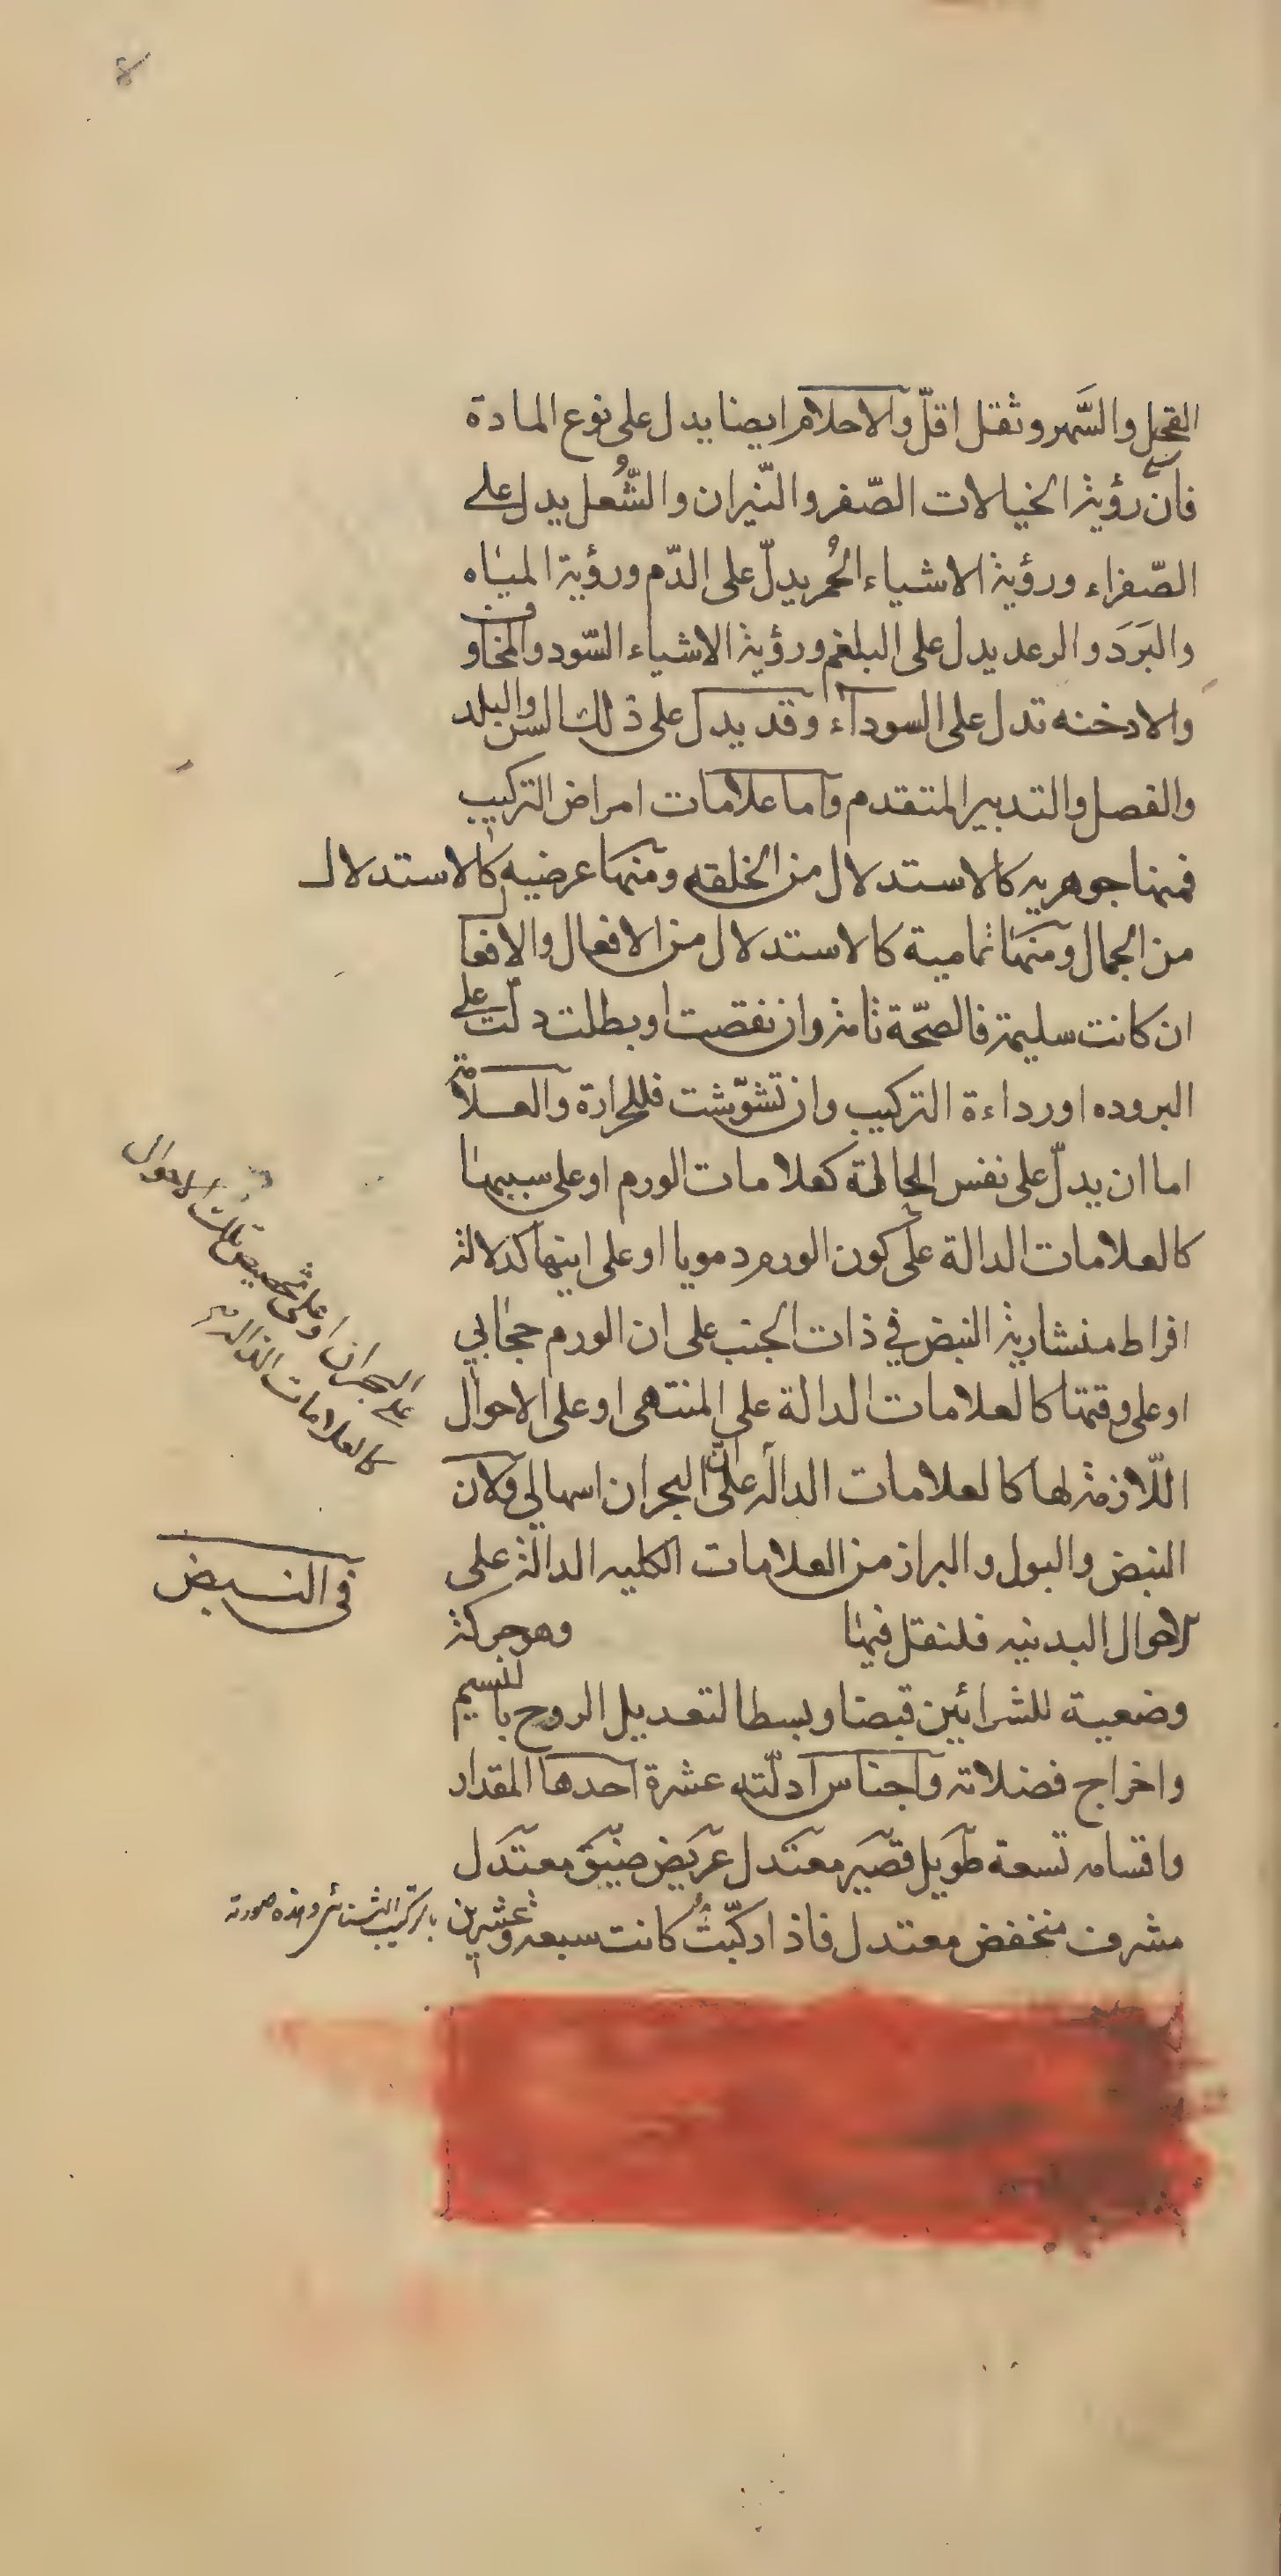 ٨
القحل والسَّهر وثقل اقلّ والاحلام ايضا يدل على نوع المادة
فانّ رؤية الخيالات الصّفر والنّيران والشُّعل يدل على
الصّفراء ورؤية الاشياء الحُمر يدلّ على الدّم ورؤية المياه
والبَرَد والرعد يدل على البلغم ورؤية الاشياء السّود والمخاوف
والادخنه تدل على السوداء وقد يدل على ذلك السن والبلد
والفصل والتدبير المتقدم واما علامات امراض التركيب
فمنها جوهريه كالاستدلال من الخلقه ومنها عرضيه كالاستدلال
من الجمال ومنها تمامية كالاستدلال من الافعال والافعال
ان كانت سليمة فالصحّة تامة وان نقصت او بطلت دلّت على
البروده او رداءة التركيب وان تشوّشت فللحرارة والعلامة
اما ان يدلّ على نفس الحالة كعلامات الورم او على سببها
كالعلامات الدالة على كون الورم دمويا او على اينها كدلالة
افراط منشارية النبض في ذات الجنب على ان الورم حجابي
او على وقتها كالعلامات الدالة على المنتهى او على الاحوال
اللّازمة لها كالعلامات الدالة على انّ البحران اسهالي ولان
النبض والبول والبراز من العلامات الكليه الدالة على
الاحوال البدنيه فلنقل فيها وهو حركة
وضعية للشرائين قبضا وبسطا لتعديل الروح بالنسيم
واخراج فضلاته واجناس ادلّته عشرة احدها المقدار
واقسامه تسعة طويل قصير معتدل عريض ضيق معتدل
مشرف منخفض معتدل فاذا ركّبتُ كانت سبعة وعشرين
او على تشخيص تلك الاحوال
كالعلامات الدالة
على البحران
في النبض